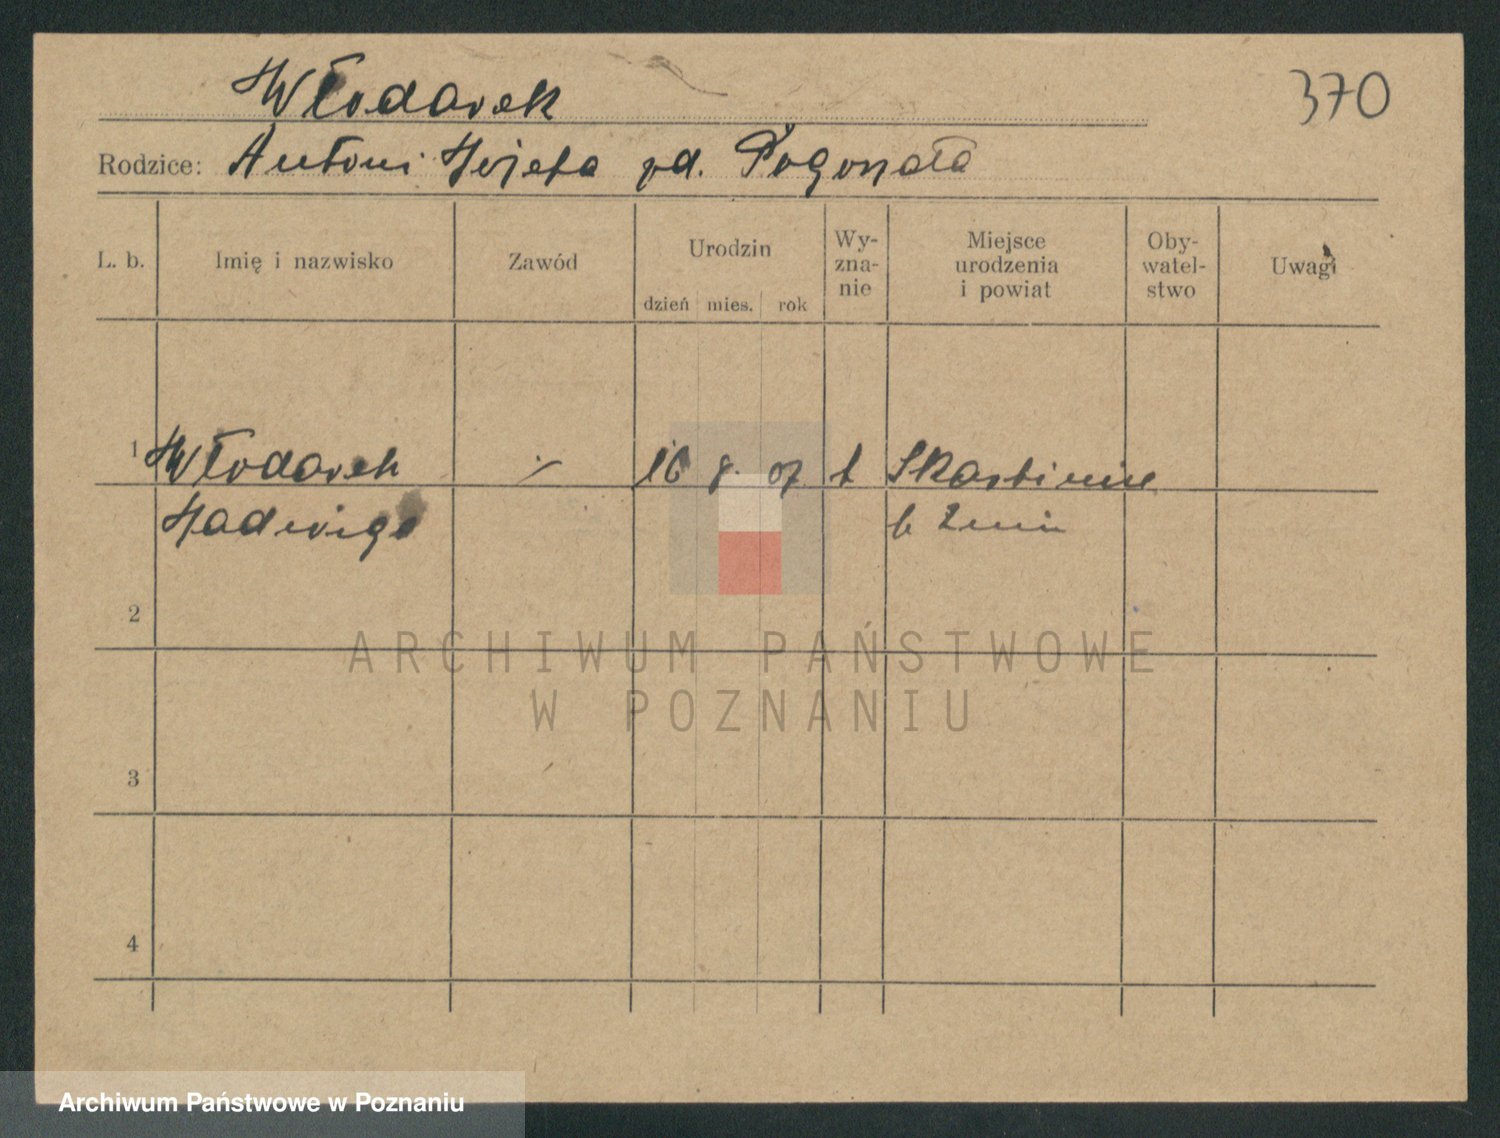 Włodarek
370
Rodzice: Antoni Józefa zd. Pogonała
L. b. Imię i nazwisko Zawód Urodzin dzień mies. rok Wy-zna-nie Miejsce urodzenia i powiat Oby-watel-stwo Uwagi
1 Włodarek 16 8. 07
Jadwiga
2
3
4
ARCHIWUM PAŃSTWOWE
W POZNANIU
Archiwum Państwowe w Poznaniu